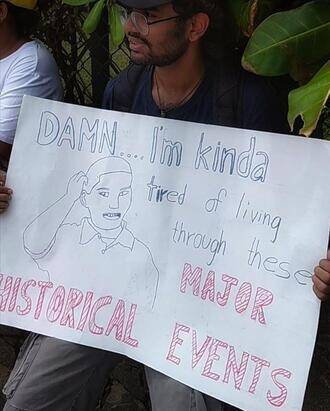 DAMN.... I'm kinda
tired of living
through these
MAJOR
HISTORICAL EVENTS